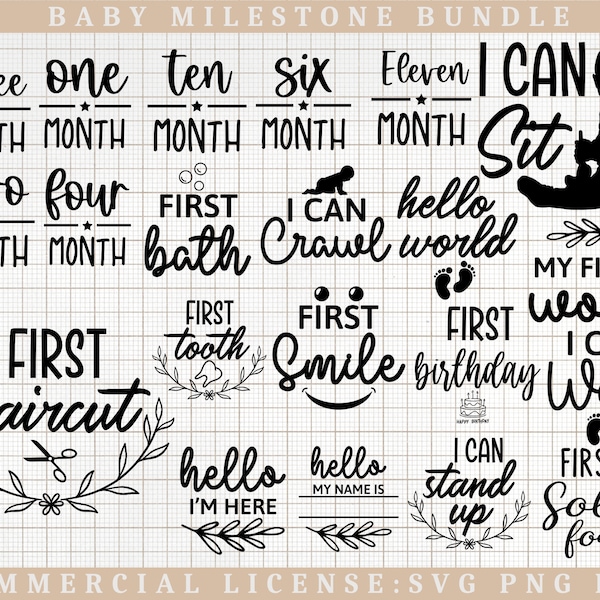 BABY MILESTONE BUNDLE
one
MONTH
ten
MONTH
six
MONTH
Eleven
MONTH
I CAN
Sit
four
MONTH
FIRST
bath
I CAN
Crawl
hello
world
MY FI
wo
FIRST
aircut
FIRST
tooth
FIRST
Smile
FIRST
birthday
HAPPY BIRTHDAY
I C
W
hello
I'M HERE
hello
MY NAME IS
I CAN
stand
up
FIRS
Sol
foo
MMERCIAL LICENSE:SVG PNG